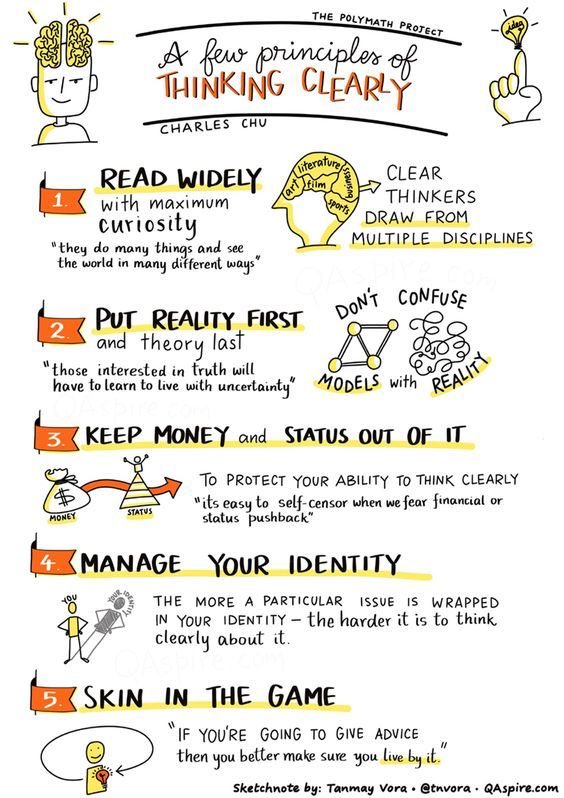 THE POLYMATH PROJECT
A few principles of
THINKING CLEARLY
CHARLES CHU
idea
1.
READ WIDELY
with maximum
curiosity
"they do many things and see
the world in many different ways"
art
literature
film
business
sports
CLEAR
THINKERS
DRAW FROM
MULTIPLE DISCIPLINES
QAspire.com
2.
PUT REALITY FIRST
and theory last
"those interested in truth will
have to learn to live with uncertainty"
DON'T CONFUSE
MODELS with REALITY
QAspire.com
3.
KEEP MONEY and STATUS OUT OF IT
$
MONEY
STATUS
TO PROTECT YOUR ABILITY TO THINK CLEARLY
"its easy to self-censor when we fear financial or
status pushback"
4.
MANAGE YOUR IDENTITY
YOU
YOUR IDENTITY
THE MORE A PARTICULAR ISSUE IS WRAPPED
IN YOUR IDENTITY – the harder it is to think
clearly about it.
QAspire.com
5.
SKIN IN THE GAME
"IF YOU'RE GOING TO GIVE ADVICE
then you better make sure you live by it."
Sketchnote by: Tanmay Vora • @tnvora • QAspire.com